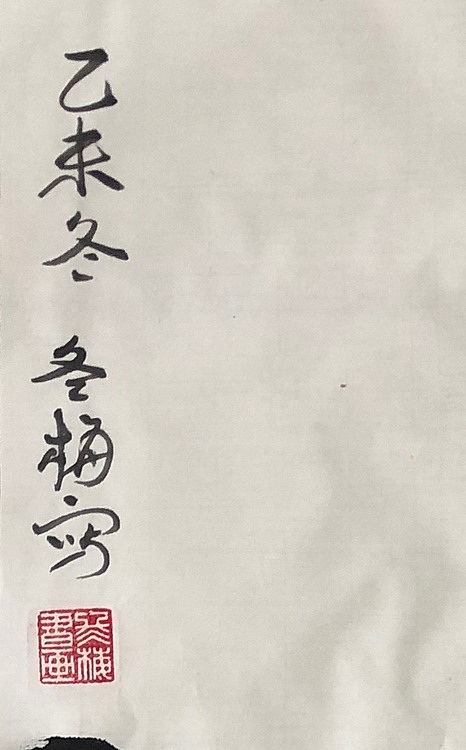 乙未冬
冬梅写
冬梅
書画